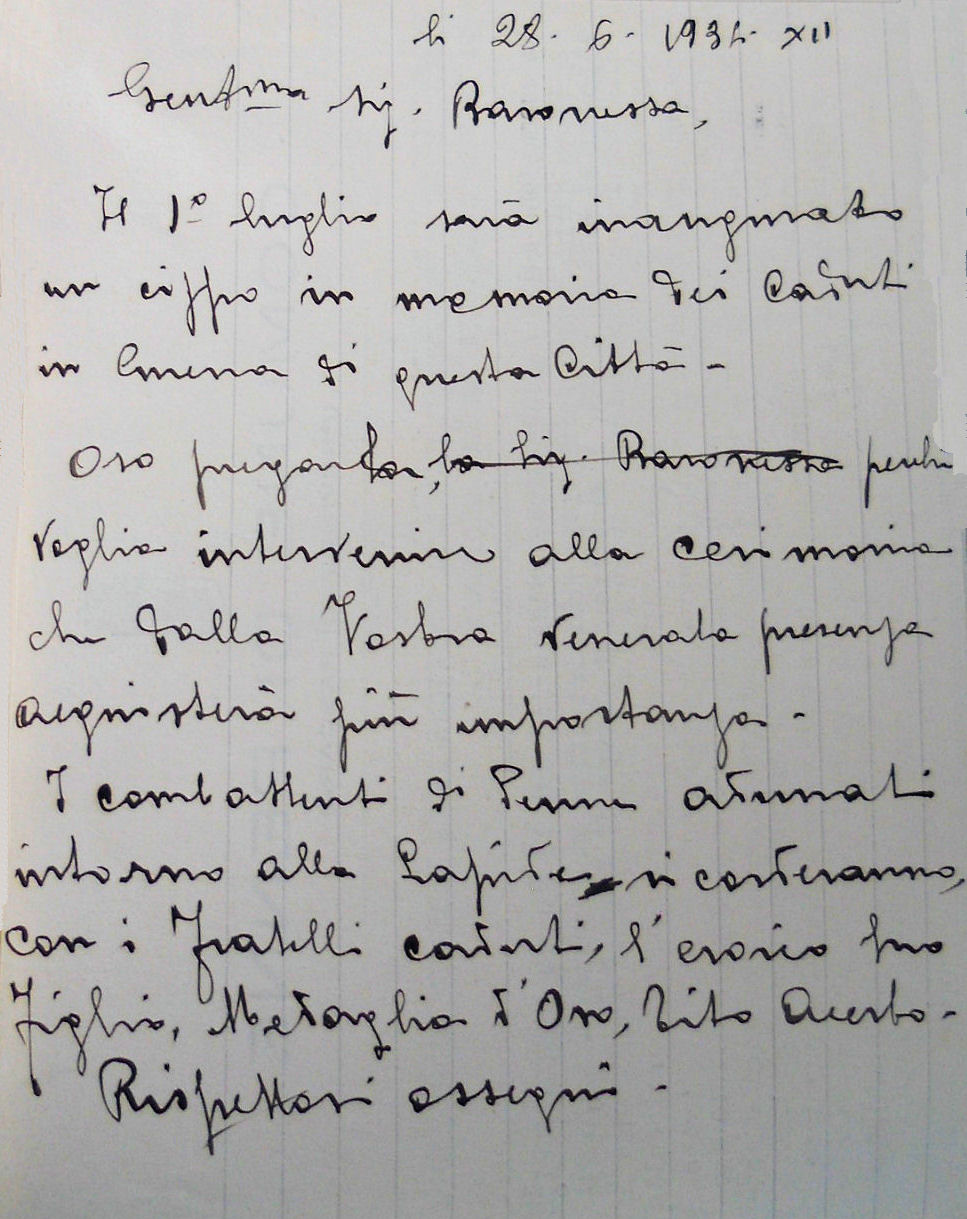 li 28. 6. 1934. XII
Gent.ma Sig. Baronessa,
Il 1º luglio sarà inaugurato
un cippo in memoria dei Caduti
in Guerra di questa Città -
Oso pregarla, la Sig. Baronessa perchè
voglia intervenire alla cerimonia
che dalla Vostra venerata presenza
acquisterà più importanza -
I combattenti di Penne adunati
intorno alla Lapide ricorderanno,
con i Fratelli caduti, l'eroico suo
Figlio, Medaglia d'Oro, Tito Acerbo -
Rispettosi ossequi -